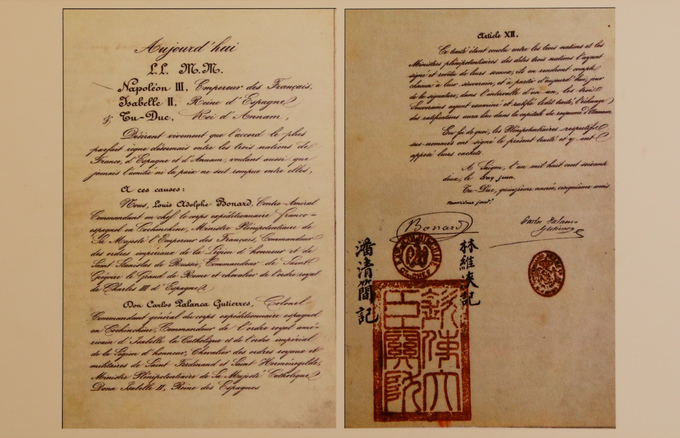 Aujourd'hui
L.L. M.M.
Napoléon III, Empereur des Français,
Isabelle II, Reine d'Espagne,
& Tu-Duc, Roi d'Annam,
Désirant vivement que l'accord le plus
parfait règne désormais entre les trois nations de
France, d'Espagne et d'Annam; voulant aussi que
jamais l'amitié ni la paix ne soit rompue entre elles,
A ces causes:
Nous, Louis Adolphe Bonard, Contre-Amiral
Commandant en chef le corps expéditionnaire franco-
espagnol en Cochinchine, Ministre Plénipotentiaire de
Sa Majesté l'Empereur des Français, Commandeur
des ordres impériaux de la Légion d'honneur et de
Saint Stanislas de Russie, Commandeur de Saint
Grégoire le Grand de Rome et chevalier de l'ordre royal
de Charles III d'Espagne
Don Carlos Palanca Gutierres, Colonel
Commandant général du corps expéditionnaire espagnol
en Cochinchine, Commandeur de l'ordre royal amé-
ricain d'Isabelle la Catholique et de l'ordre impérial
de la Légion d'honneur; Chevalier des ordres royaux et
militaires de Saint Ferdinand et Saint Hermenegilde,
Ministre Plénipotentiaire de Sa Majesté Catholique
Dona Isabelle II, Reine des Espagnes
Article XII.
Ce traité étant conclu entre les trois nations et les
Ministres plénipotentiaires des dites trois nations l'ayant
signé et revêtu de leurs sceaux, ils en rendront compte
chacun à leur souverain; et à partir d'aujourd'hui, jour
de la signature, dans l'intervalle d'un an, les trois
Souverains ayant examiné et ratifié ledit traité, l'échange
des ratifications aura lieu dans la capitale du royaume d'Annam.
En foi de quoi, les Plénipotentiaires respectifs
sus-nommés ont signé le présent traité et y ont
apposé leurs cachets.
A Saïgon, l'an mil huit cent soixante
deux, le cinq juin.
Tu-Duc, quinzième année, cinquième mois
neuvième jour.
Bonard
Carlos Palanca
Gutierrez
林維浹記
潘清簡記